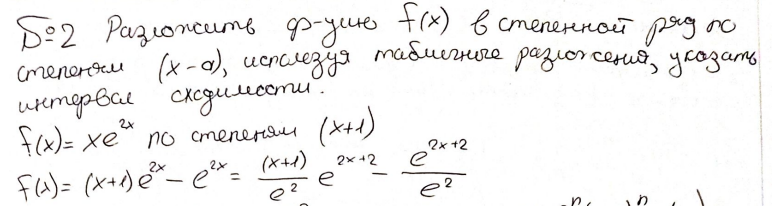 №2 Разложить ф-цию f(x) в степенной ряд по
степеням (x-a), используя табличные разложения, указать
интервал сходимости.
f(x)= xe^{2x} по степеням (x+1)
f(x)= (x+1)e^{2x} - e^{2x} = \frac{(x+1)}{e^2} e^{2x+2} - \frac{e^{2x+2}}{e^2}